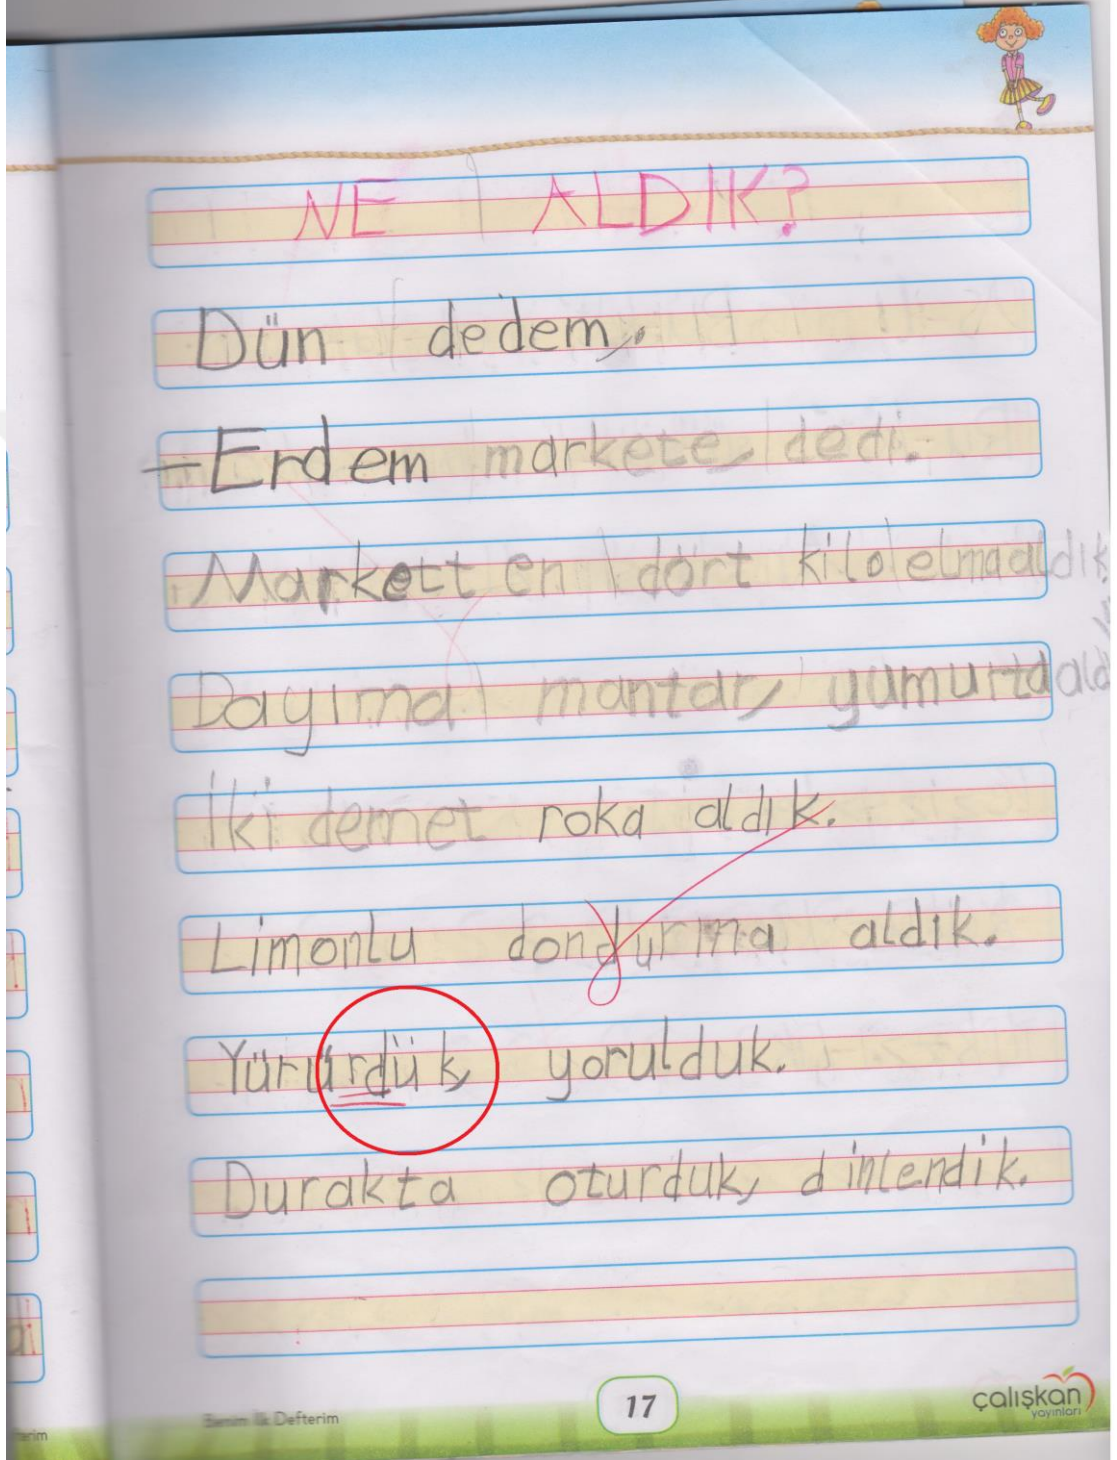 NE ALDIK?
Dün dedem,
-Erdem markete, dedi.
Markett en dört kilo elma aldık
Dayıma mantar, yumurta ald
İki demet roka aldık.
Limonlu dondurma aldık.
Yürürdük, yorulduk.
Durakta oturduk, dinlendik.
Benim İlk Defterim
17
çalışkan
yayınları